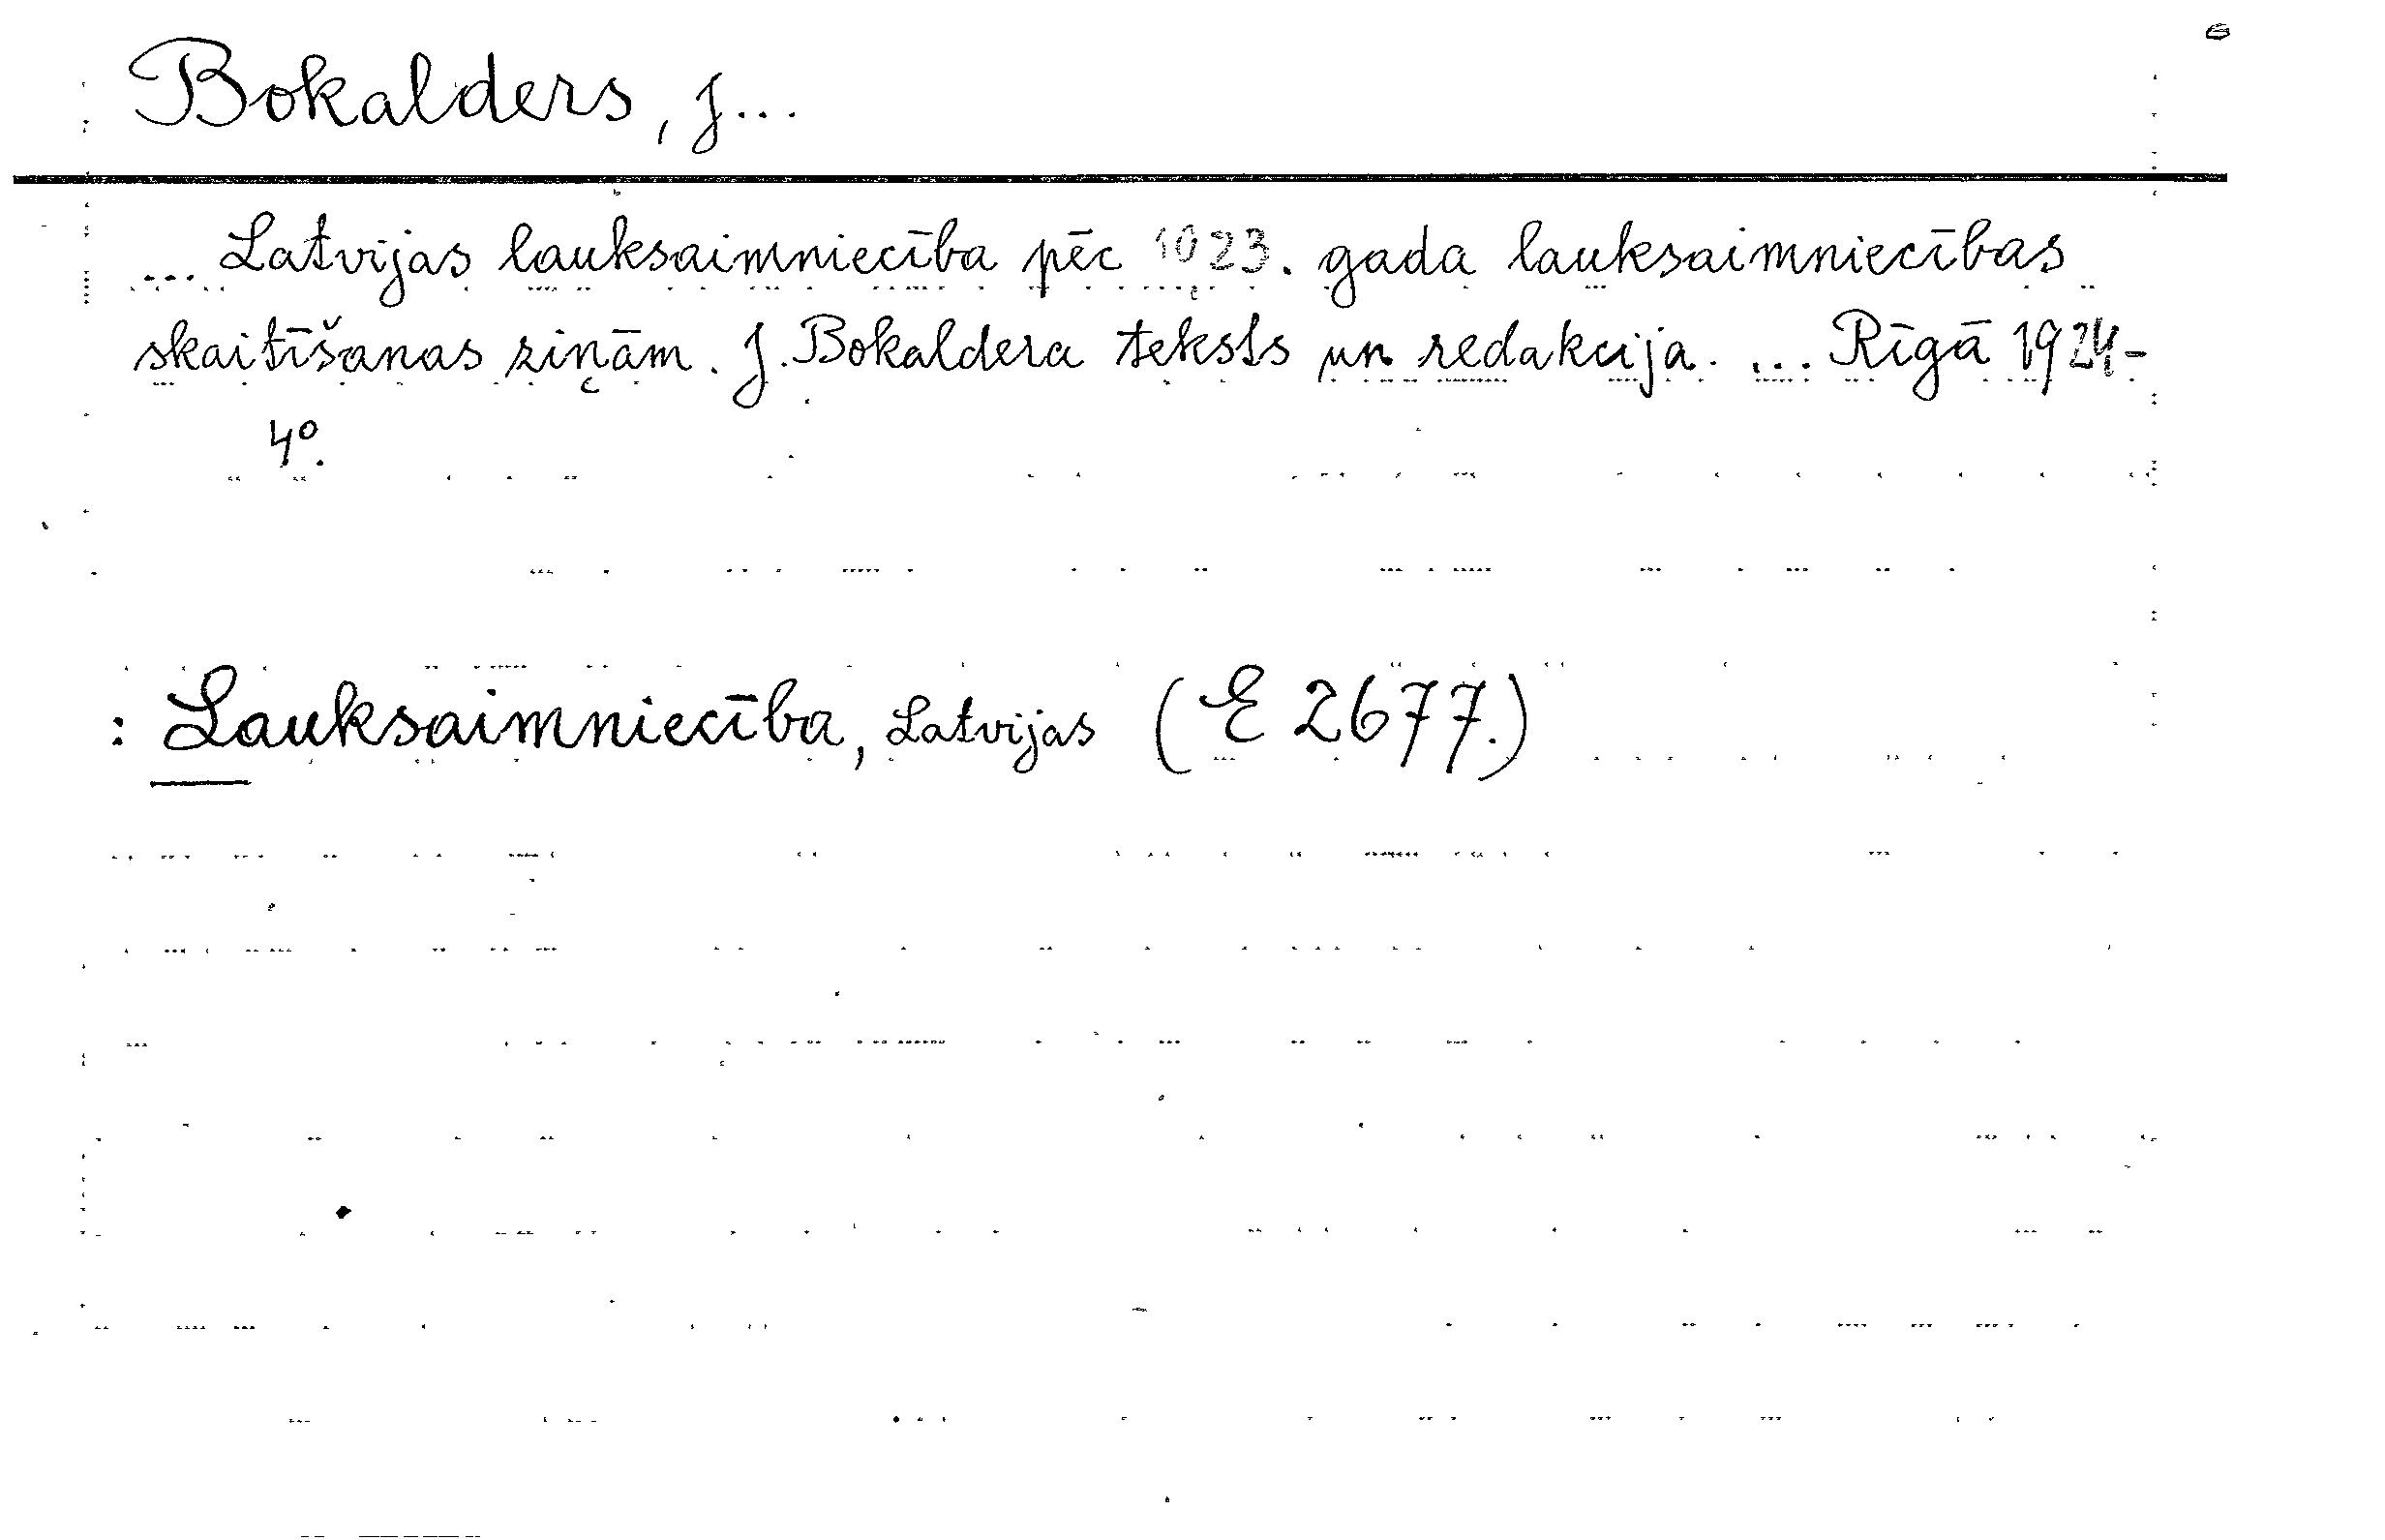 Bokalders, J...
... Latvijas lauksaimniecība pēc 1923. gada lauksaimniecības
skaitīšanas ziņām. J. Bokaldera teksts un redakcija. ... Rīgā 1924-
4°.
: Lauksaimniecība, Latvijas (E 2677.)